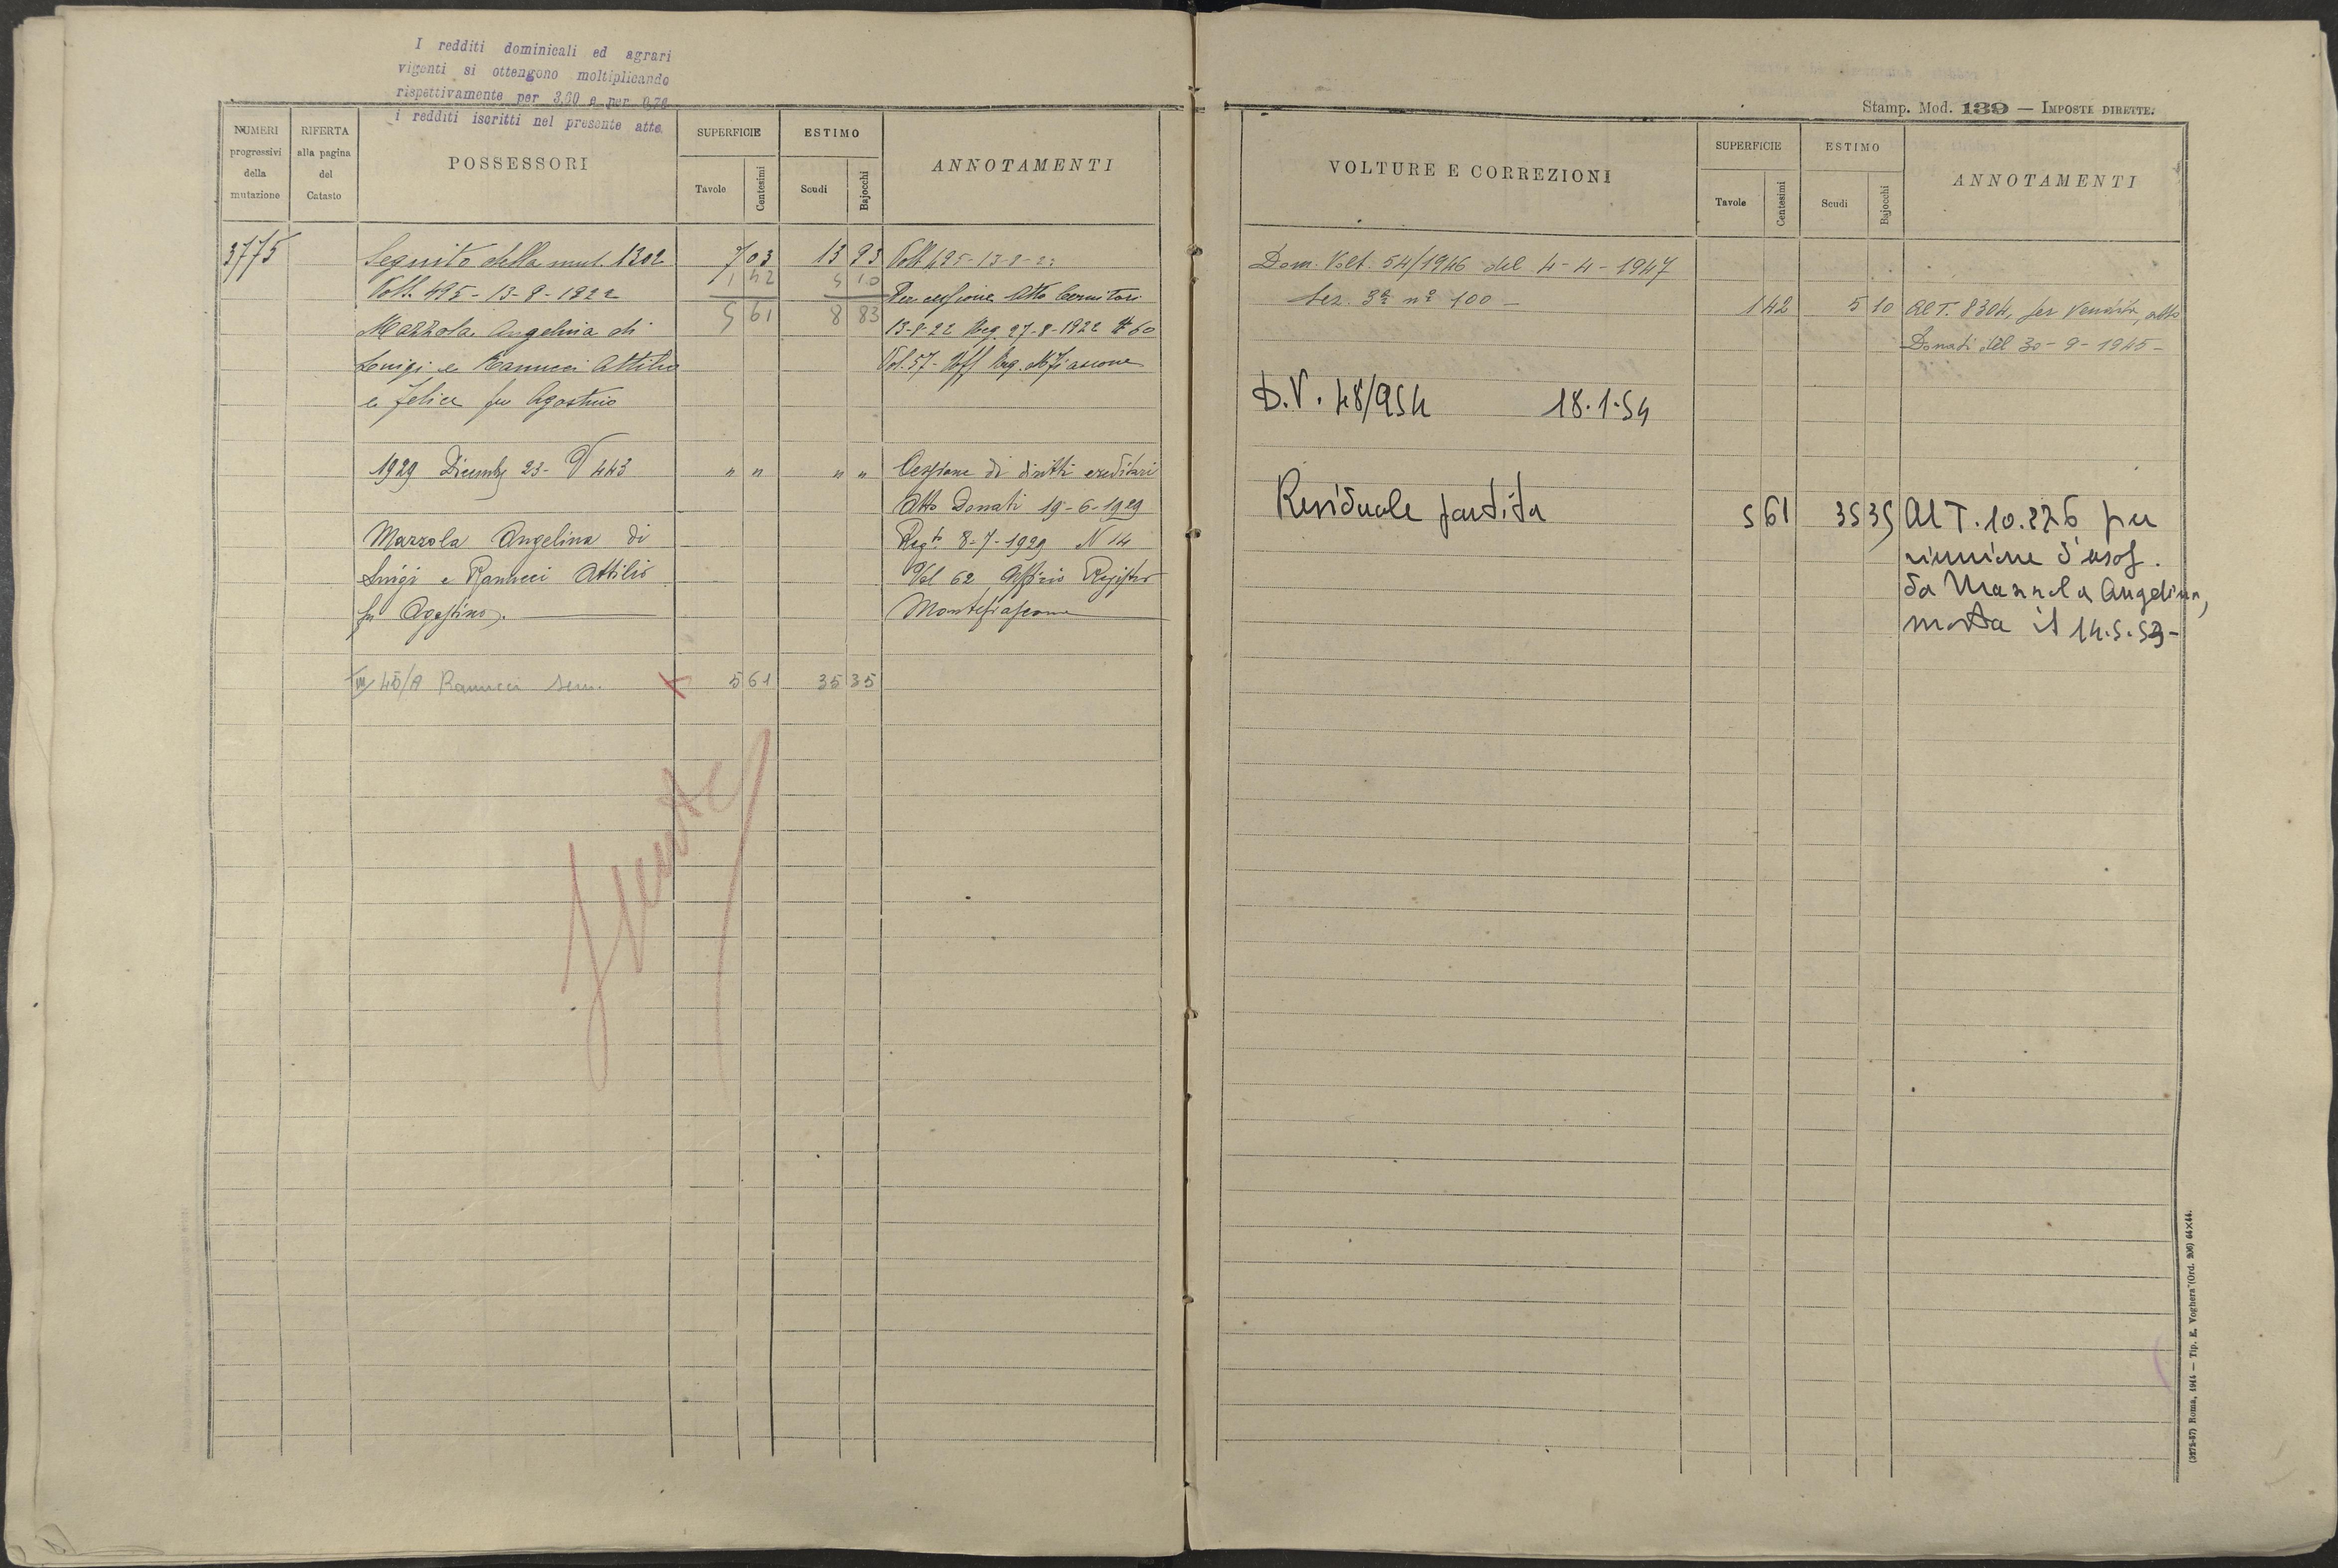 I redditi dominicali ed agrari
vigenti si ottengono moltiplicando
rispettivamente per 3,60 e per 0,70
i redditi iscritti nel presente atto.
NUMERI progressivi della mutazione
RIFERTA alla pagina del Catasto
POSSESSORI
SUPERFICIE
Tavole
Centesimi
ESTIMO
Scudi
Bajocchi
ANNOTAMENTI
3775 Seguito della mut. 1302 7 03 13 93 Volt 495-13-8-22
Volt. 495-13-8-1922 1 42 5 10 Per cessione Atto
5 61 8 83
Mazzola Angelina di 13-8-22 Reg. 27-8-1922 # 60
Luigi e Ranucci Attilio Vol. 57- Uff Reg. M.fiascone
e Felice fu Agostino
1929 Dicembre 23- V 443 " " " " Cessione di diritti ereditari
Atto Donati 19-6-1929
Mazzola Angelina di Regto 8-7-1929 N 14
Luigi e Ranucci Attilio Vol 62 Uffizio Registro
fu Agostino. Montefiascone
45/A Ranucci sem. x 5 61 35 35
Stamp. Mod. 139 — IMPOSTE DIRETTE.
VOLTURE E CORREZIONI
SUPERFICIE
Tavole
Centesimi
ESTIMO
Scudi
Bajocchi
ANNOTAMENTI
Dom. Volt. 54/1946 del 4-4-1947
Sez. 3ª nº 100 - 1 42 5 10 Al T. 8304, per Vendita, atto
Donati del 30-9-1945-
D.V. 48/954 18.1.54
Residuale partita 5 61 35 35 Al T. 10.276 per
riunione d'usof.
da Mazzola Angelina,
morta il 14.5.53-
(3275-57) Roma, 1914 — Tip. E. Voghera (Ord. 206) 64×44.